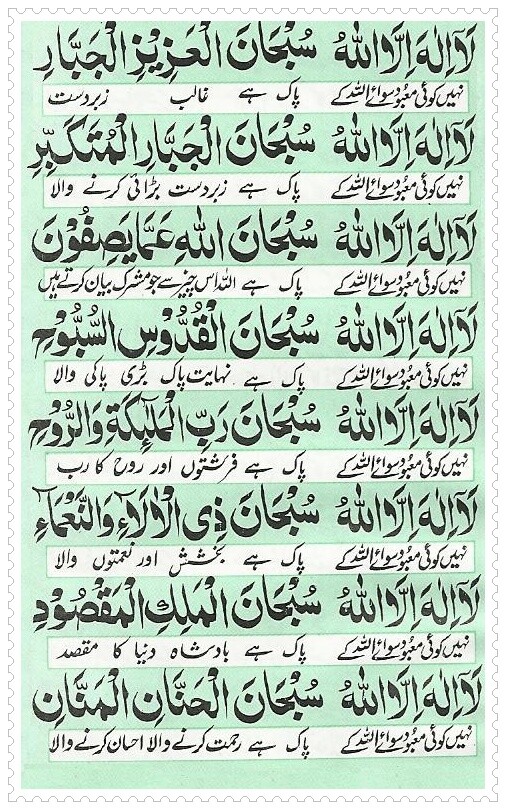 لَا اِلٰهَ اِلَّا اللهُ سُبْحَانَ الْعَزِيْزِ الْجَبَّارِ
نہیں کوئی معبود سوائے اللہ کے پاک ہے غالب زبردست
لَا اِلٰهَ اِلَّا اللهُ سُبْحَانَ الْجَبَّارِ الْمُتَكَبِّرِ
نہیں کوئی معبود سوائے اللہ کے پاک ہے زبردست بڑائی کرنے والا
لَا اِلٰهَ اِلَّا اللهُ سُبْحَانَ اللهِ عَمَّا يَصِفُوْنَ
نہیں کوئی معبود سوائے اللہ کے پاک ہے اللہ اس چیز سے جو مشرک بیان کرتے ہیں
لَا اِلٰهَ اِلَّا اللهُ سُبْحَانَ الْقُدُّوْسِ السُّبُّوْحِ
نہیں کوئی معبود سوائے اللہ کے پاک ہے نہایت پاک بڑی پاکی والا
لَا اِلٰهَ اِلَّا اللهُ سُبْحَانَ رَبِّ الْمَلٰٓئِكَةِ وَالرُّوْحِ
نہیں کوئی معبود سوائے اللہ کے پاک ہے فرشتوں اور روح کا رب
لَا اِلٰهَ اِلَّا اللهُ سُبْحَانَ ذِی الْاٰلَآءِ وَالنَّعْمَآءِ
نہیں کوئی معبود سوائے اللہ کے پاک ہے بخشش اور نعمتوں والا
لَا اِلٰهَ اِلَّا اللهُ سُبْحَانَ الْمَلِكِ الْمَقْصُوْدِ
نہیں کوئی معبود سوائے اللہ کے پاک ہے بادشاہ دنیا کا مقصد
لَا اِلٰهَ اِلَّا اللهُ سُبْحَانَ الْحَنَّانِ الْمَنَّانِ
نہیں کوئی معبود سوائے اللہ کے پاک ہے رحمت کرنے والا احسان کرنے والا